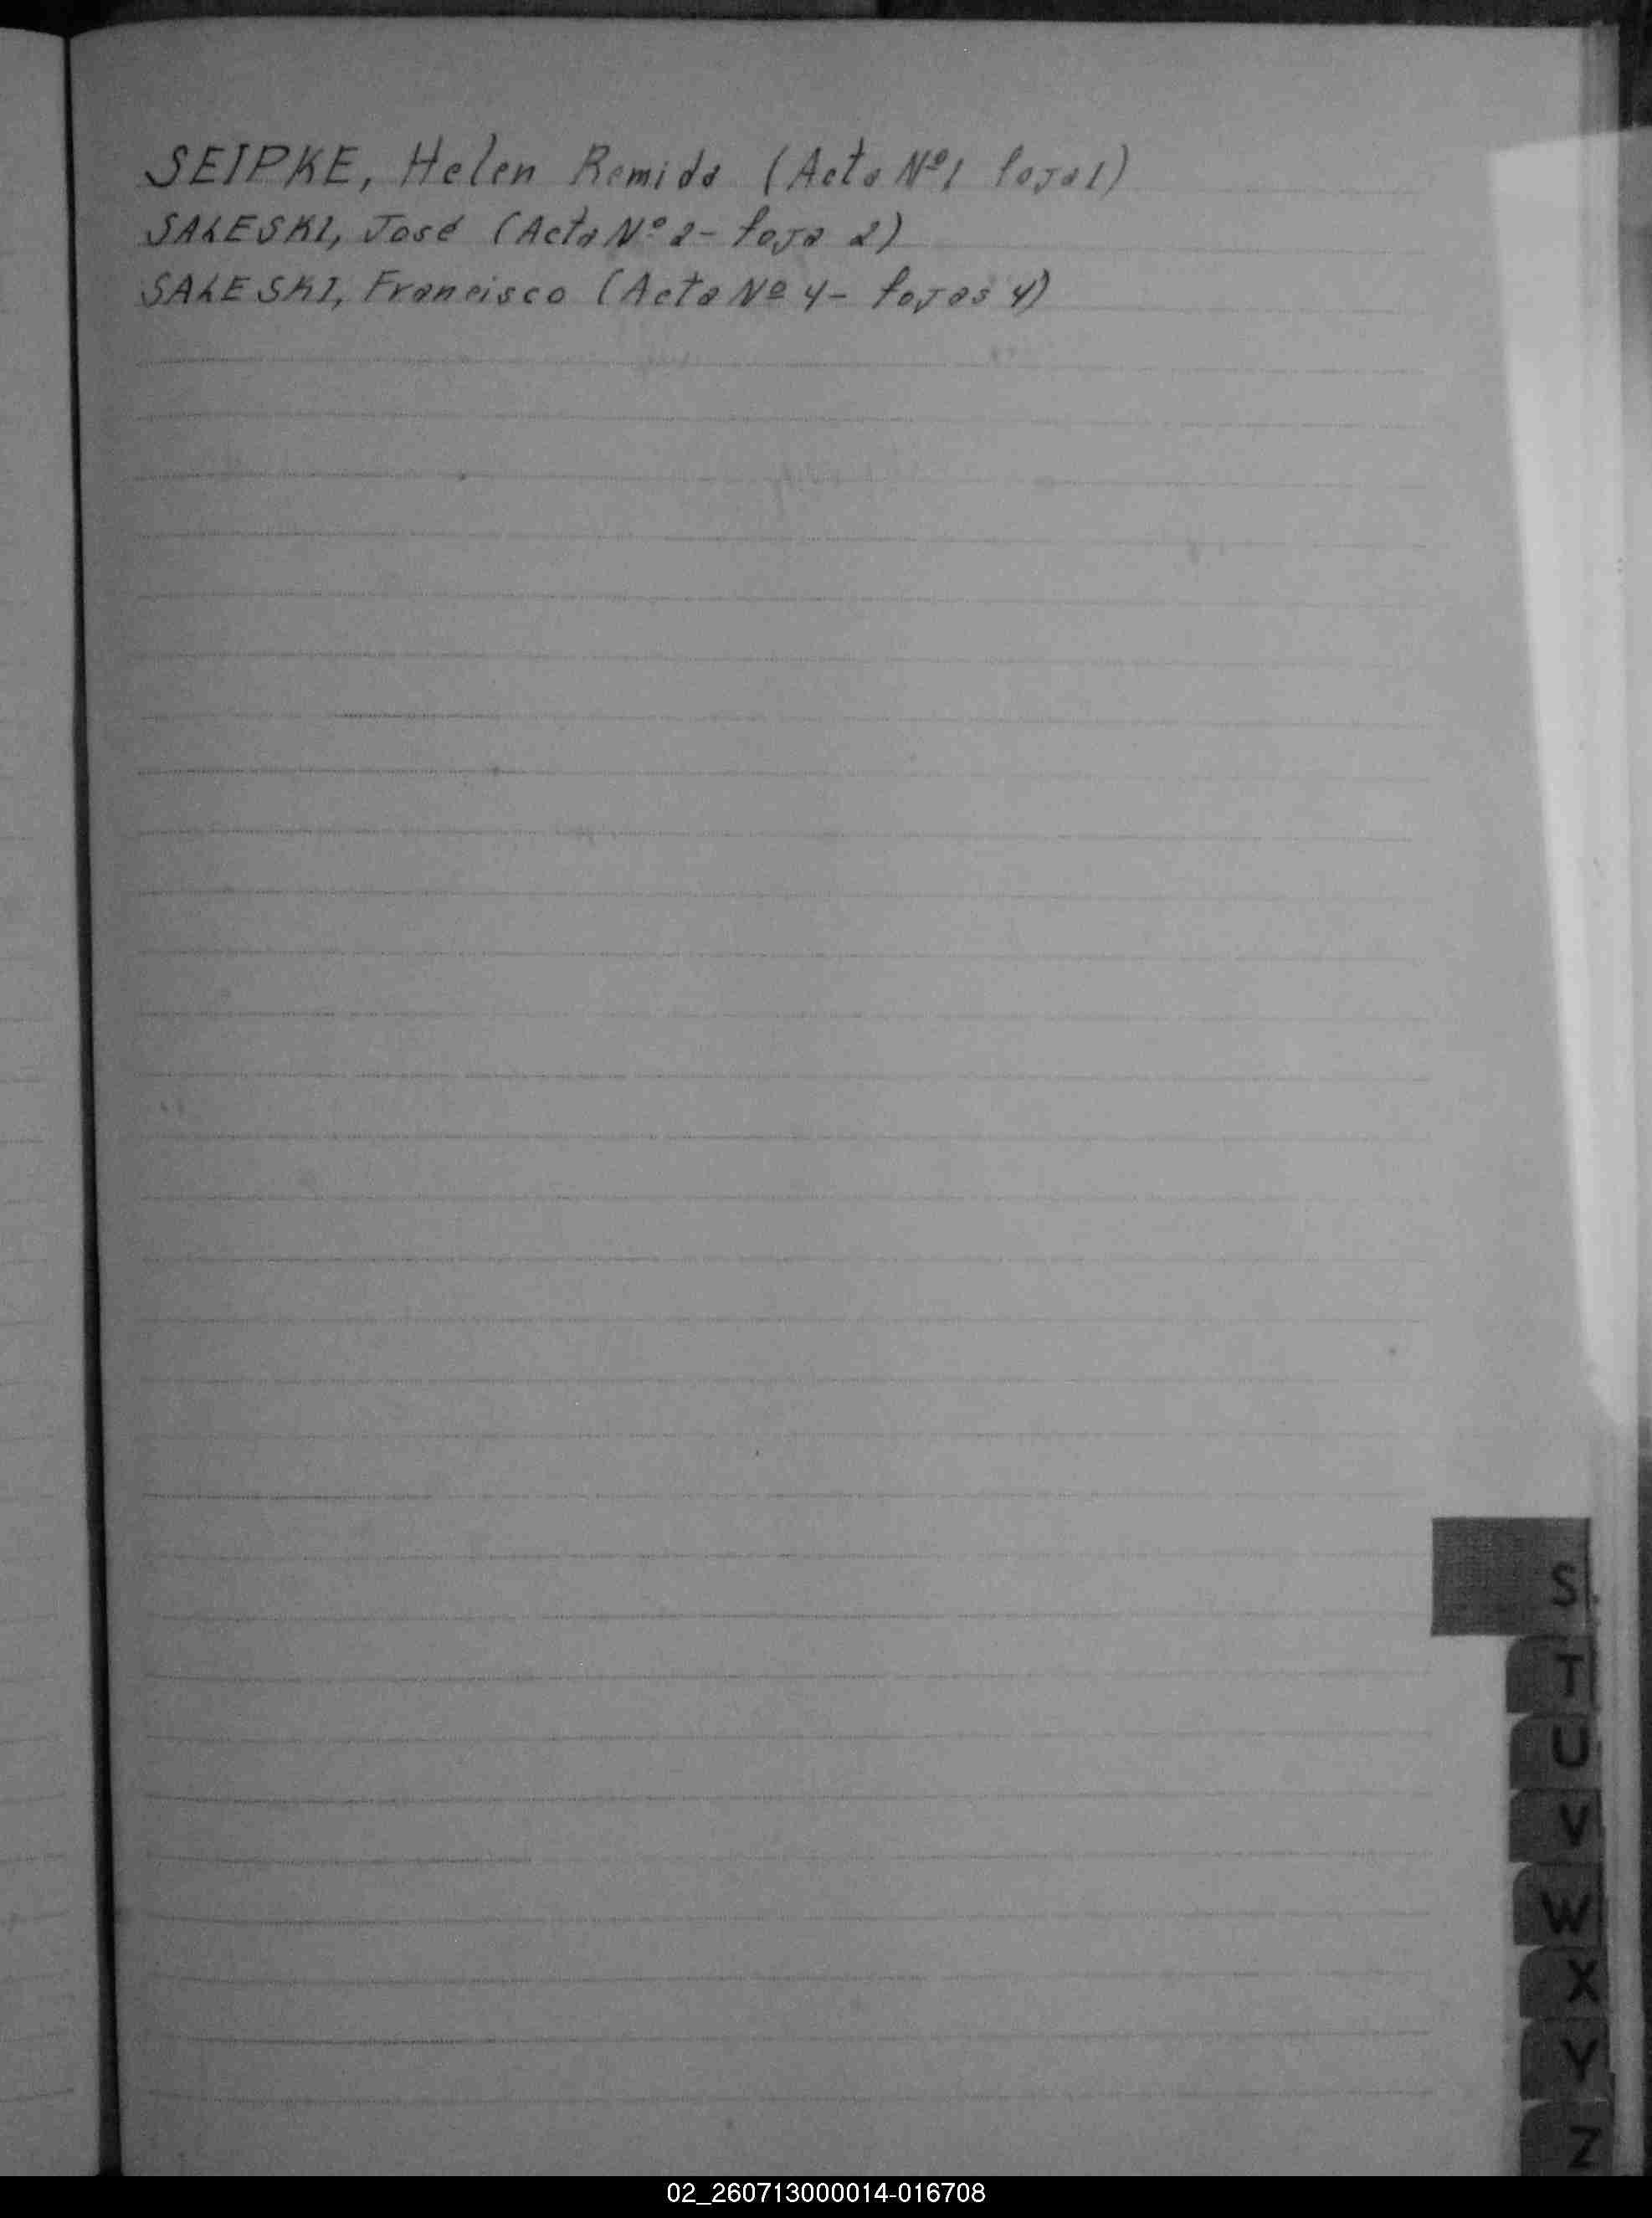 SEIPKE, Helen Remida (Acta Nº1 foja 1)
SALESKI, José (Acta Nº 2- foja 2)
SALESKI, Francisco (Acta Nº 4- fojas 4)
S
T
U
V
W
X
Y
Z
02_260713000014-016708